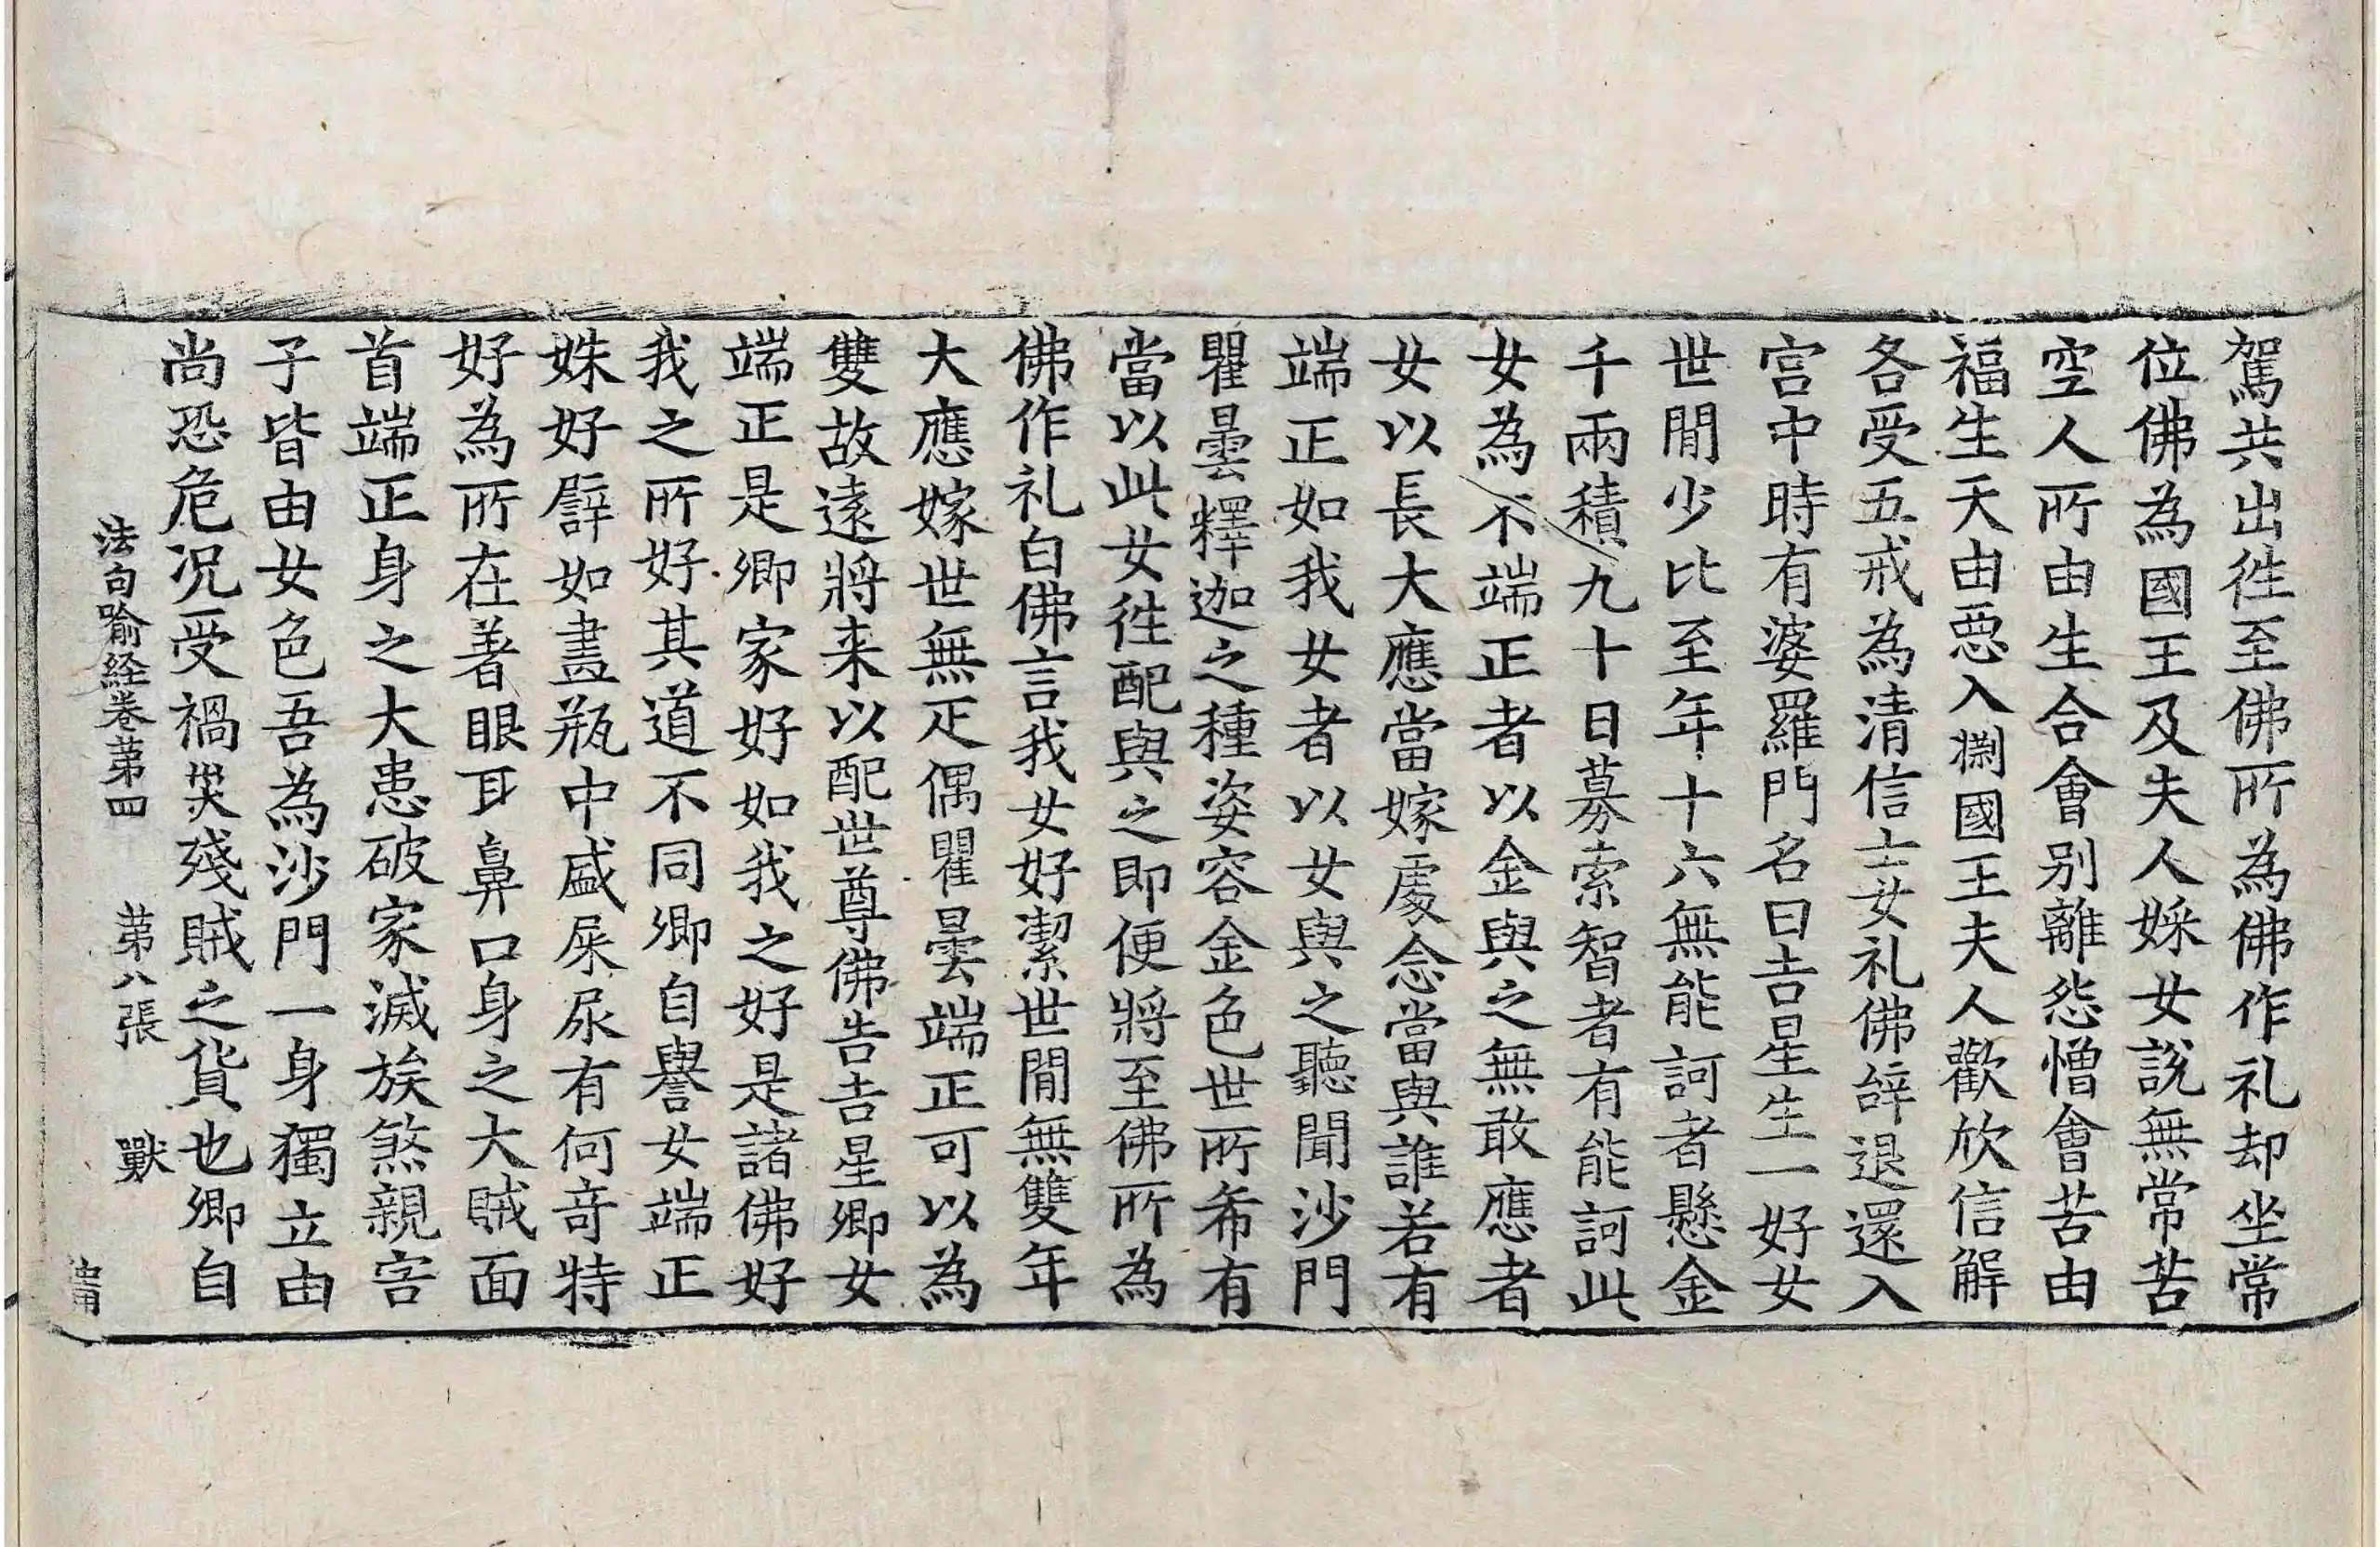 駕共出徃至佛所為佛作礼却坐常
位佛為國王及夫人婇女說無常苦
空人所由生合會別離怨憎會苦由
福生天由惡入淵國王夫人歡欣信解
各受五戒為清信士女礼佛辝退還入
宫中時有婆羅門名曰吉星生一好女
世間少比至年十六無能訶者懸金
千兩積九十日募索智者有能訶此
女為不端正者以金與之無敢應者
女以長大應當嫁處念當與誰若有
端正如我女者以女與之聽聞沙門
瞿曇釋迦之種姿容金色世所希有
當以此女徃配與之即便將至佛所為
佛作礼白佛言我女好潔世間無雙年
大應嫁世無疋偶瞿曇端正可以為
雙故遠將来以配世尊佛告吉星卿女
端正是卿家好如我之好是諸佛好
我之所好其道不同卿自譽女端正
姝好譬如畫瓶中盛屎尿有何竒特
好為所在著眼耳鼻口身之大賊面
首端正身之大患破家滅族煞親害
子皆由女色吾為沙門一身獨立由
尚恐危况受禍災殘賊之貨也卿自
法句喻経卷苐四 苐八張 獸